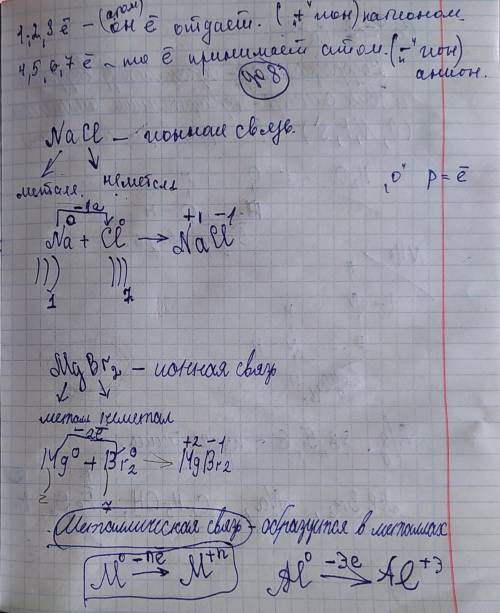 1,2,3 ē – (атом) он ē отдаёт. ("+" ион) катионом
4,5,6,7 ē – то ē принимает атом. ("–" ион) анион.
до 8
NaCl – ионная связь.
металл неметалл
"0" p = ē
–1ē
Na⁰ + Cl⁰ → Na⁺¹Cl⁻¹
))) )))
1 7
MgBr₂ – ионная связь
металл неметал
–2ē
Mg⁰ + Br₂⁰ → Mg⁺²Br₂⁻¹
2 7
Металлическая связь – образуется в металлах
M⁰ –nē→ M⁺ⁿ Al⁰ –3e→ Al⁺³